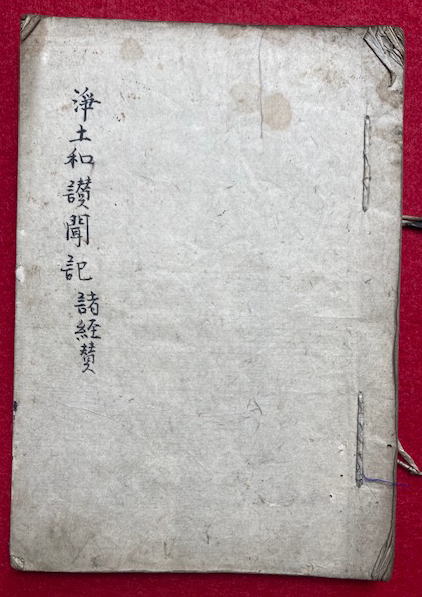 淨土和讃聞記 諸経賛